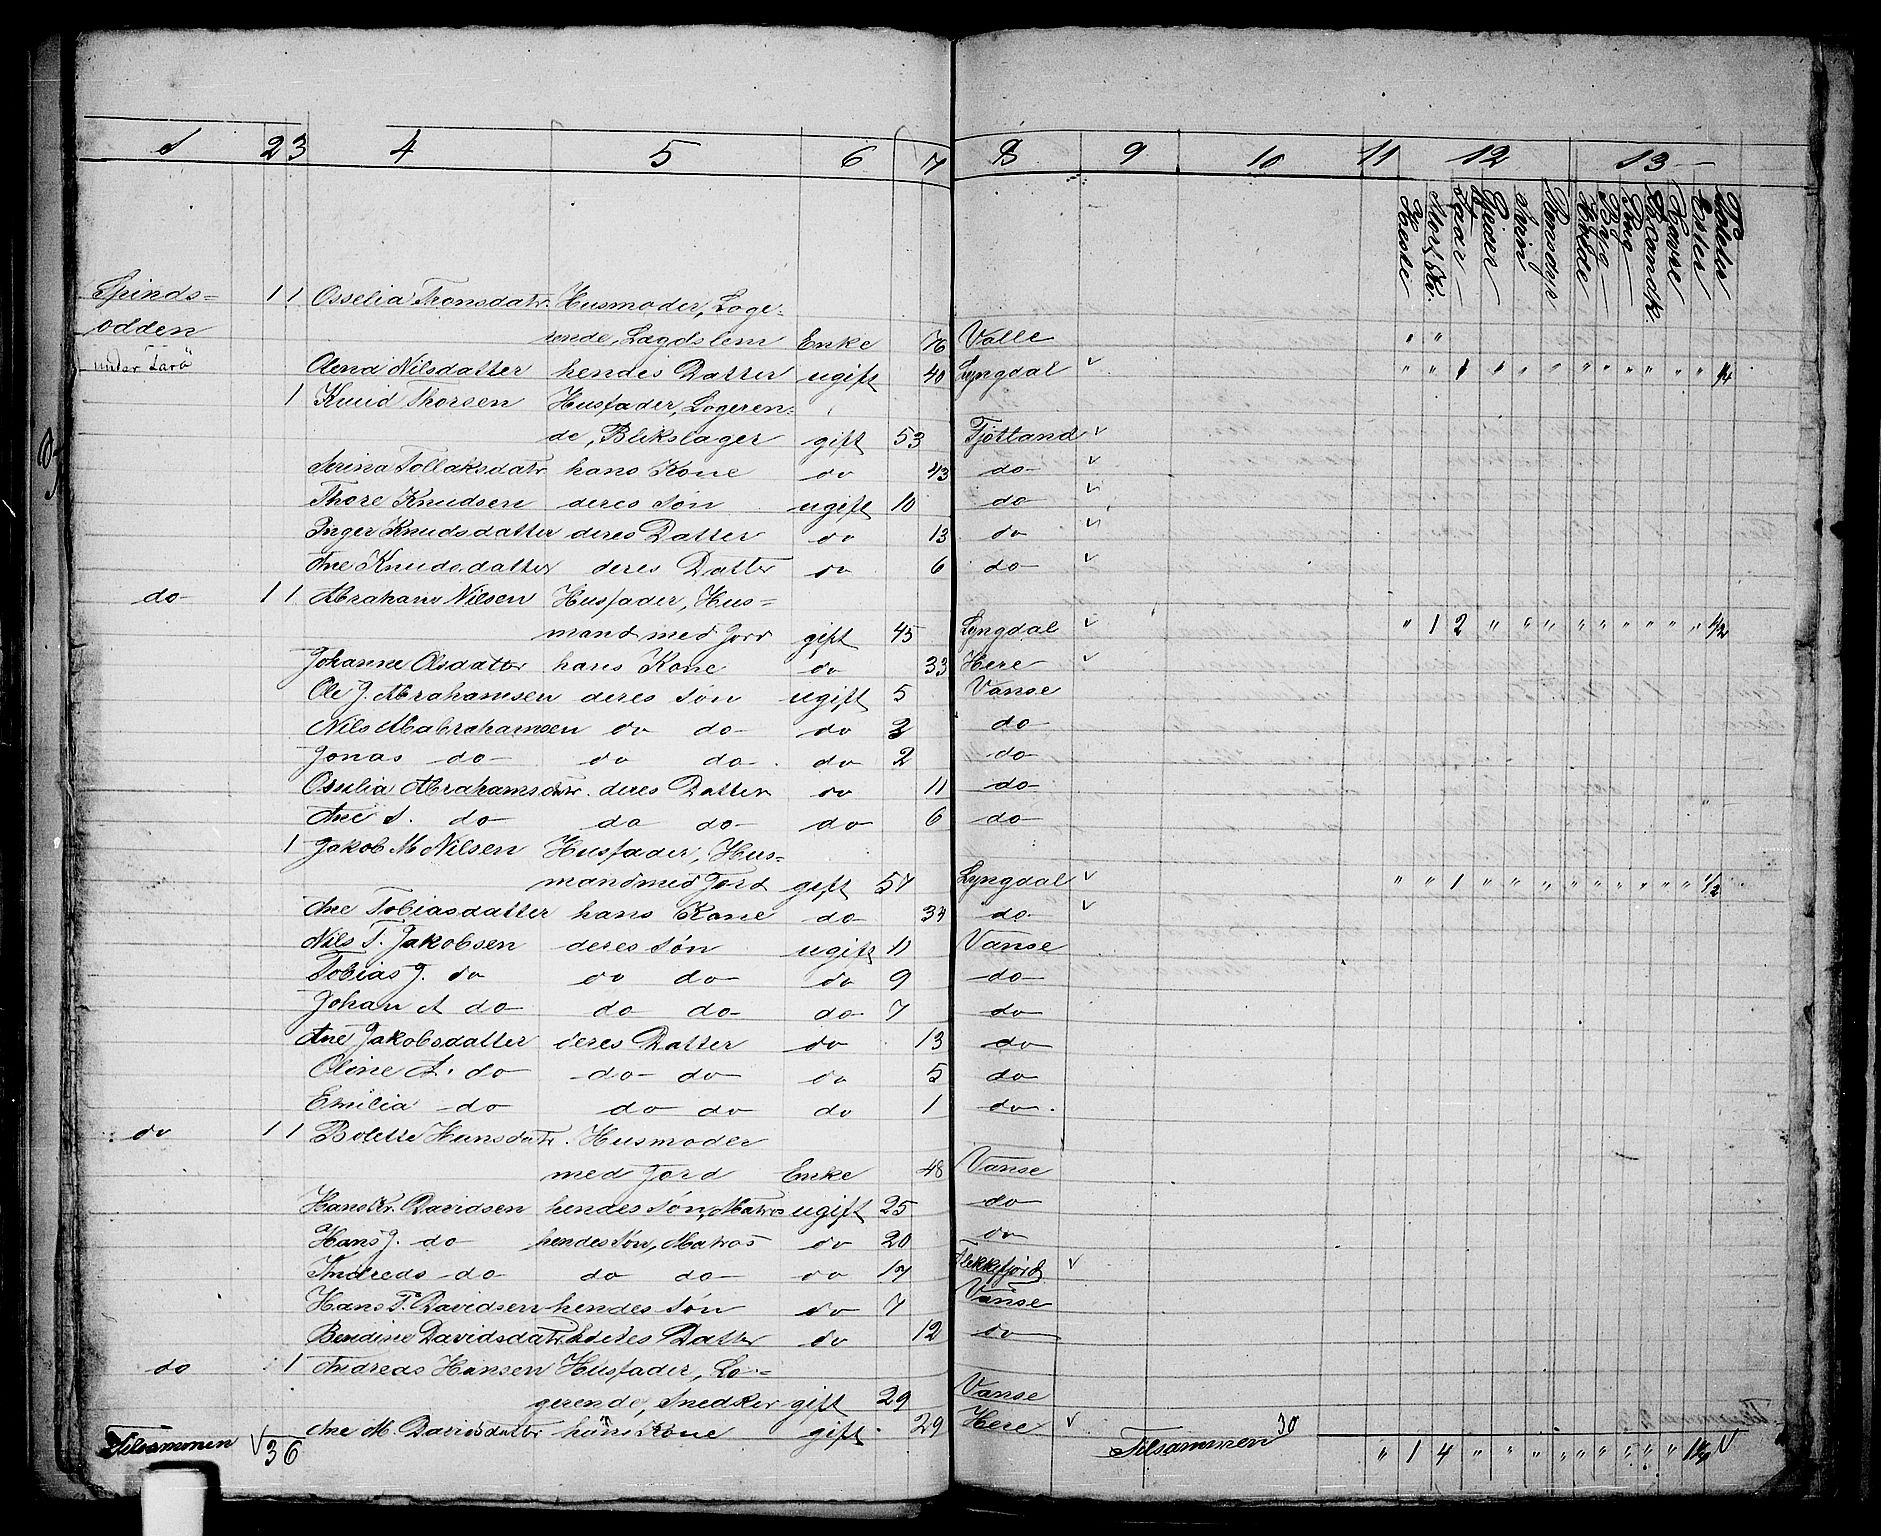 1 2 3 4 5 6 7 8 9 10 11 12 13
Heste Stort Kv. Faar Geder Svin Rensdyr Hvede Byg Rug Blandk. Havre Erter Poteter
Spinds= 1 1 Osselia Thonsdatr. Husmoder, Loge-
odden rende, Lægdslem Enke 76 Valle " "
under Tarö Olena Nilsdatter hendes Datter ugift 40 Lyngdal v " " 1 1 " " " " " " " " 1/4
1 Knud Thorsen Husfader, Logeren-
de, Blikslager gift 53 Fjotland v
Serina Tollaksdatr hans Kone do 43 do v
Thore Knudsen deres Søn ugift 10 do v
Inger Knudsdatter deres Datter do 13 do v
Ane Knudsdatter deres Datter do 6 do v
do 1 1 Abraham Nilsen Husfader, Hus=
mand med Jord gift 45 Lyngdal v " 1 2 " " " " " " " " " 1/2
Johanne Olsdattr hans Kone do 33 Here v
Ole J. Abrahamsen deres Søn ugift 5 Vanse
Nils Mabrahamsen do do do 3 do
Jonas do do do do 2 do
Osselia Abrahamsdtr. deres Datter do 11 do
Ane S. do do do do 6 do
1 Jakob M Nilsen Husfader, Hus=
mand med Jord gift 57 Lyngdal v " " 1 " " " " " " " " " 1/2
Ane Tobiasdatter hans Kone do 37 do v
Nils T. Jakobsen deres Søn ugift 11 Vanse
Tobias J. do do do do 9 do
Johan A do do do do 7 do
Ane Jakobsdatter deres Datter do 13 do
Oline A. do do do do 5 do
Emilia do do do do 1 do.
do 1 1 Bolette Hansdatr. Husmoder
med Jord Enke 48 Vanse
Hans Kr. Davidsen hendes Søn, Matros ugift 25 do
Hans J. do hendes Søn, Matros do 20 do
Andreas do do do do 17 Flekkefjord v
Hans T. Davidsen hendes Søn do 7 Vanse
Bendine Davidsdatr. hendes Datter do 12 do
do 1 Andreas Hansen Husfader, Lo=
gerende, Snedker gift 29 Vanse
Ane M. Davidsdatter hans Kone gift 29 Here v
Tilsammen v 36 Tilsammen 30 " 1 4 " " " " " " " " " 1 1/4 v